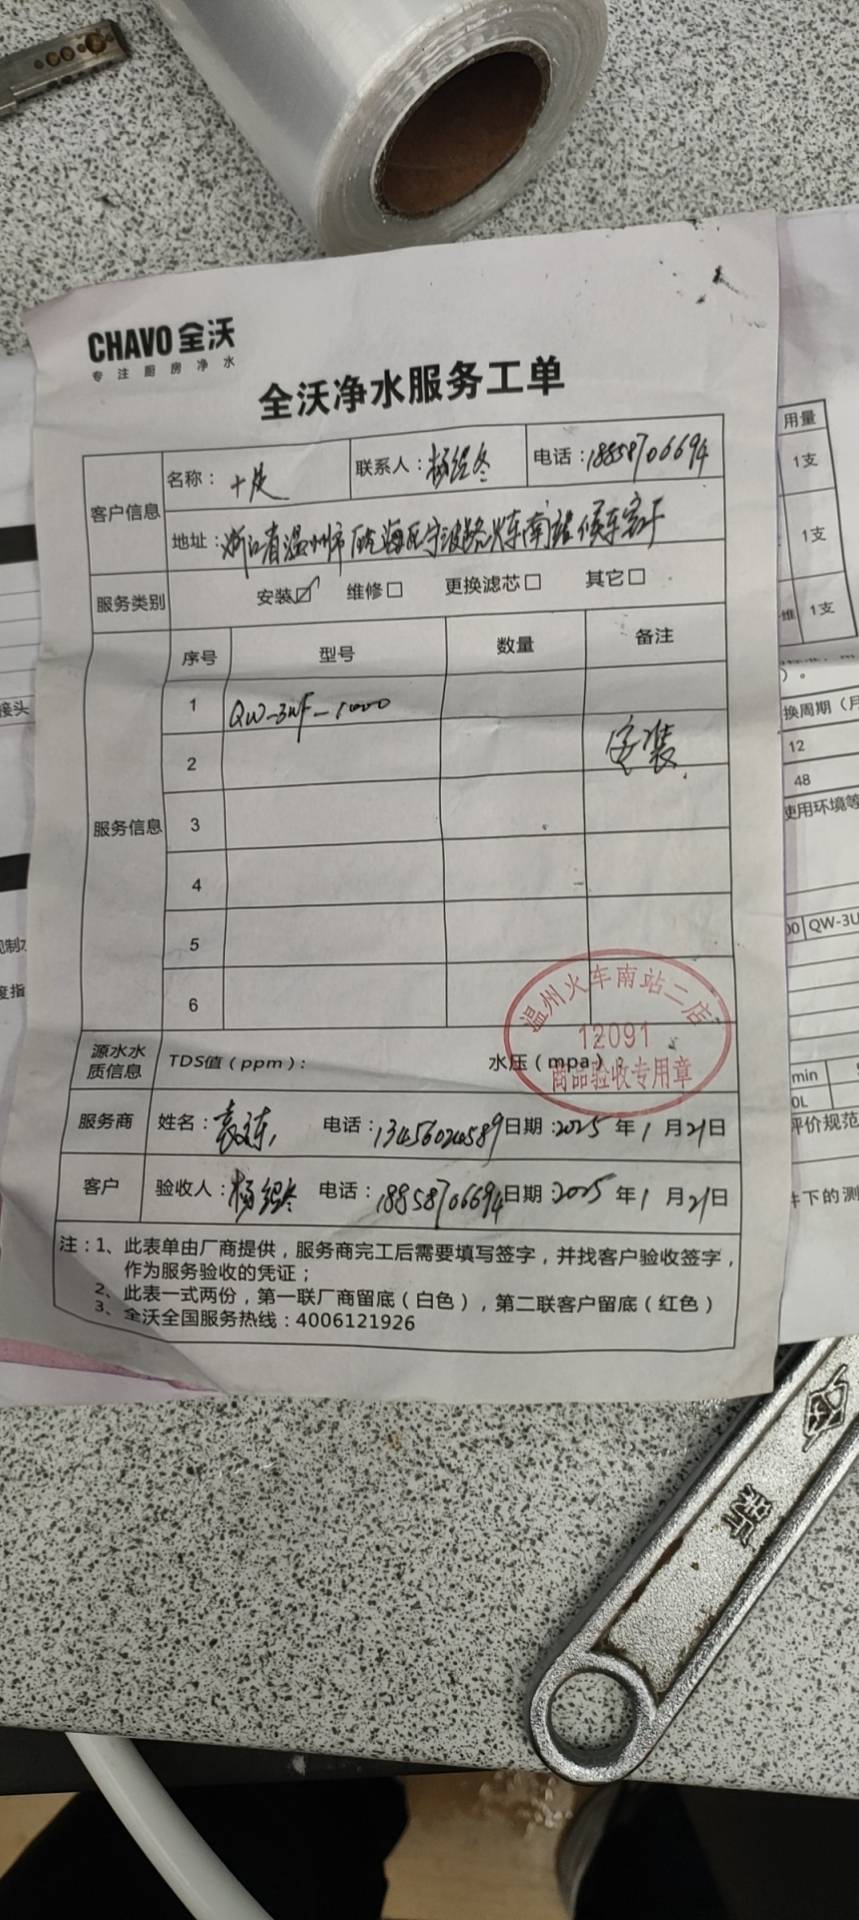 CHAVO 全沃
专注厨房净水
全沃净水服务工单
客户信息
名称：十足 联系人：杨绍冬 电话：18858706694
地址：浙江省温州市瓯海区宁波路火车南站候车室下
服务类别 安装☑ 维修□ 更换滤芯□ 其它□
服务信息
序号 型号 数量 备注
1 QW-3UF-1000
2 安装
3
4
5
6
温州火车南站二店
12091
商品验收专用章
源水水质信息 TDS值（ppm）： 水压（mpa）：
服务商 姓名： 电话：13456024589 日期：2025年1月21日
客户 验收人：杨绍冬 电话：18858706694 日期：2025年1月21日
注：1、此表单由厂商提供，服务商完工后需要填写签字，并找客户验收签字，
作为服务验收的凭证；
2、此表一式两份，第一联厂商留底（白色），第二联客户留底（红色）
3、全沃全国服务热线：4006121926
用量
1支
1支
1支
换周期（月
12
48
使用环境等
QW-3U
min
0L
评价规范
件下的测
接头
度指